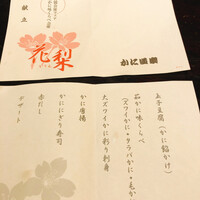 献立
花梨
かに道楽
玉子豆腐（かに餡かけ）
茹かに味くらべ
（ズワイかに・タラバかに・毛かに
大ズワイかに彩り刺身
かに唐揚
かににぎり寿司
赤だし
デザート